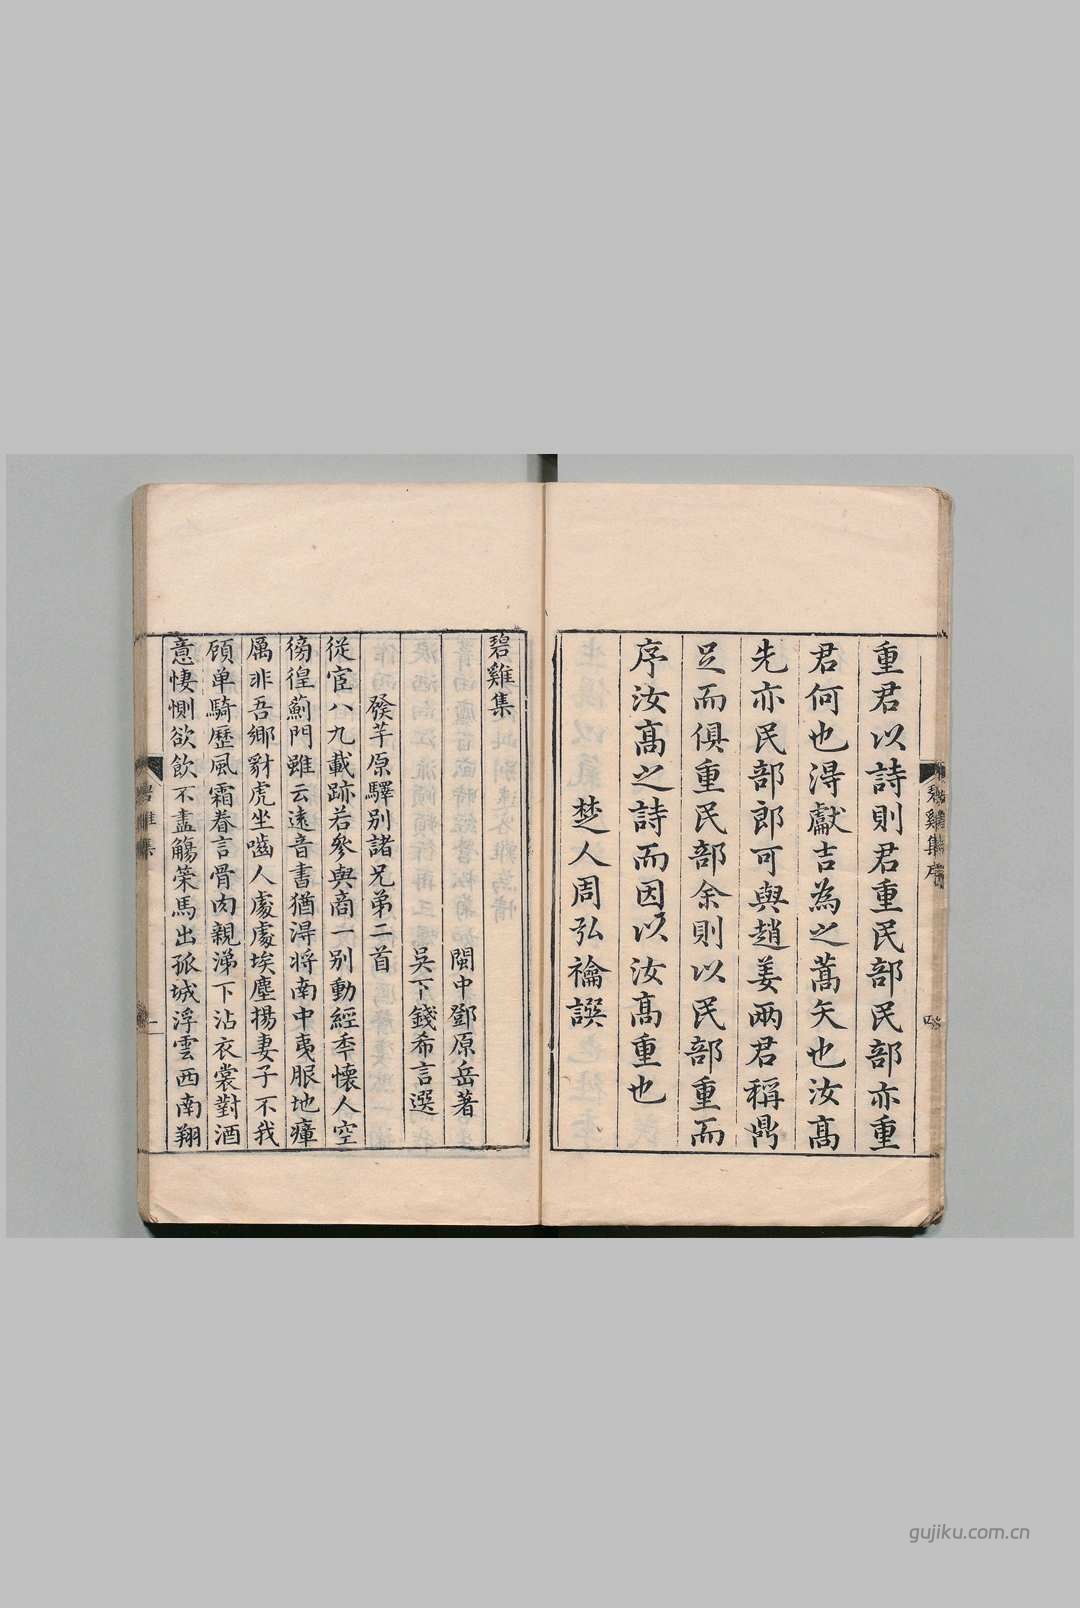 重君以詩則君重民部民部亦重
君何也淂獻吉為之蒿矢也汝高
先亦民部郎可與趙姜兩君稱鼎
足而俱重民部余則以民部重而
序汝高之詩而因以汝高重也
楚人周弘禴譔
碧雞集序
四
碧雞集
閩中鄧原岳著
吳下錢希言選
發芋原驛別諸兄弟二首
從宦八九載跡若參與商一別動經秊懷人空
徬徨薊門雖云遠音書猶淂將南中夷服地瘴
厲非吾鄉豺虎坐嚙人處處埃塵揚妻子不我
頋单騎歷風霜眷言骨肉親涕下沾衣裳對酒
意悽惻欲飲不盡觴策馬出孤城浮雲西南翔
碧雞集
一
gujiku.com.cn